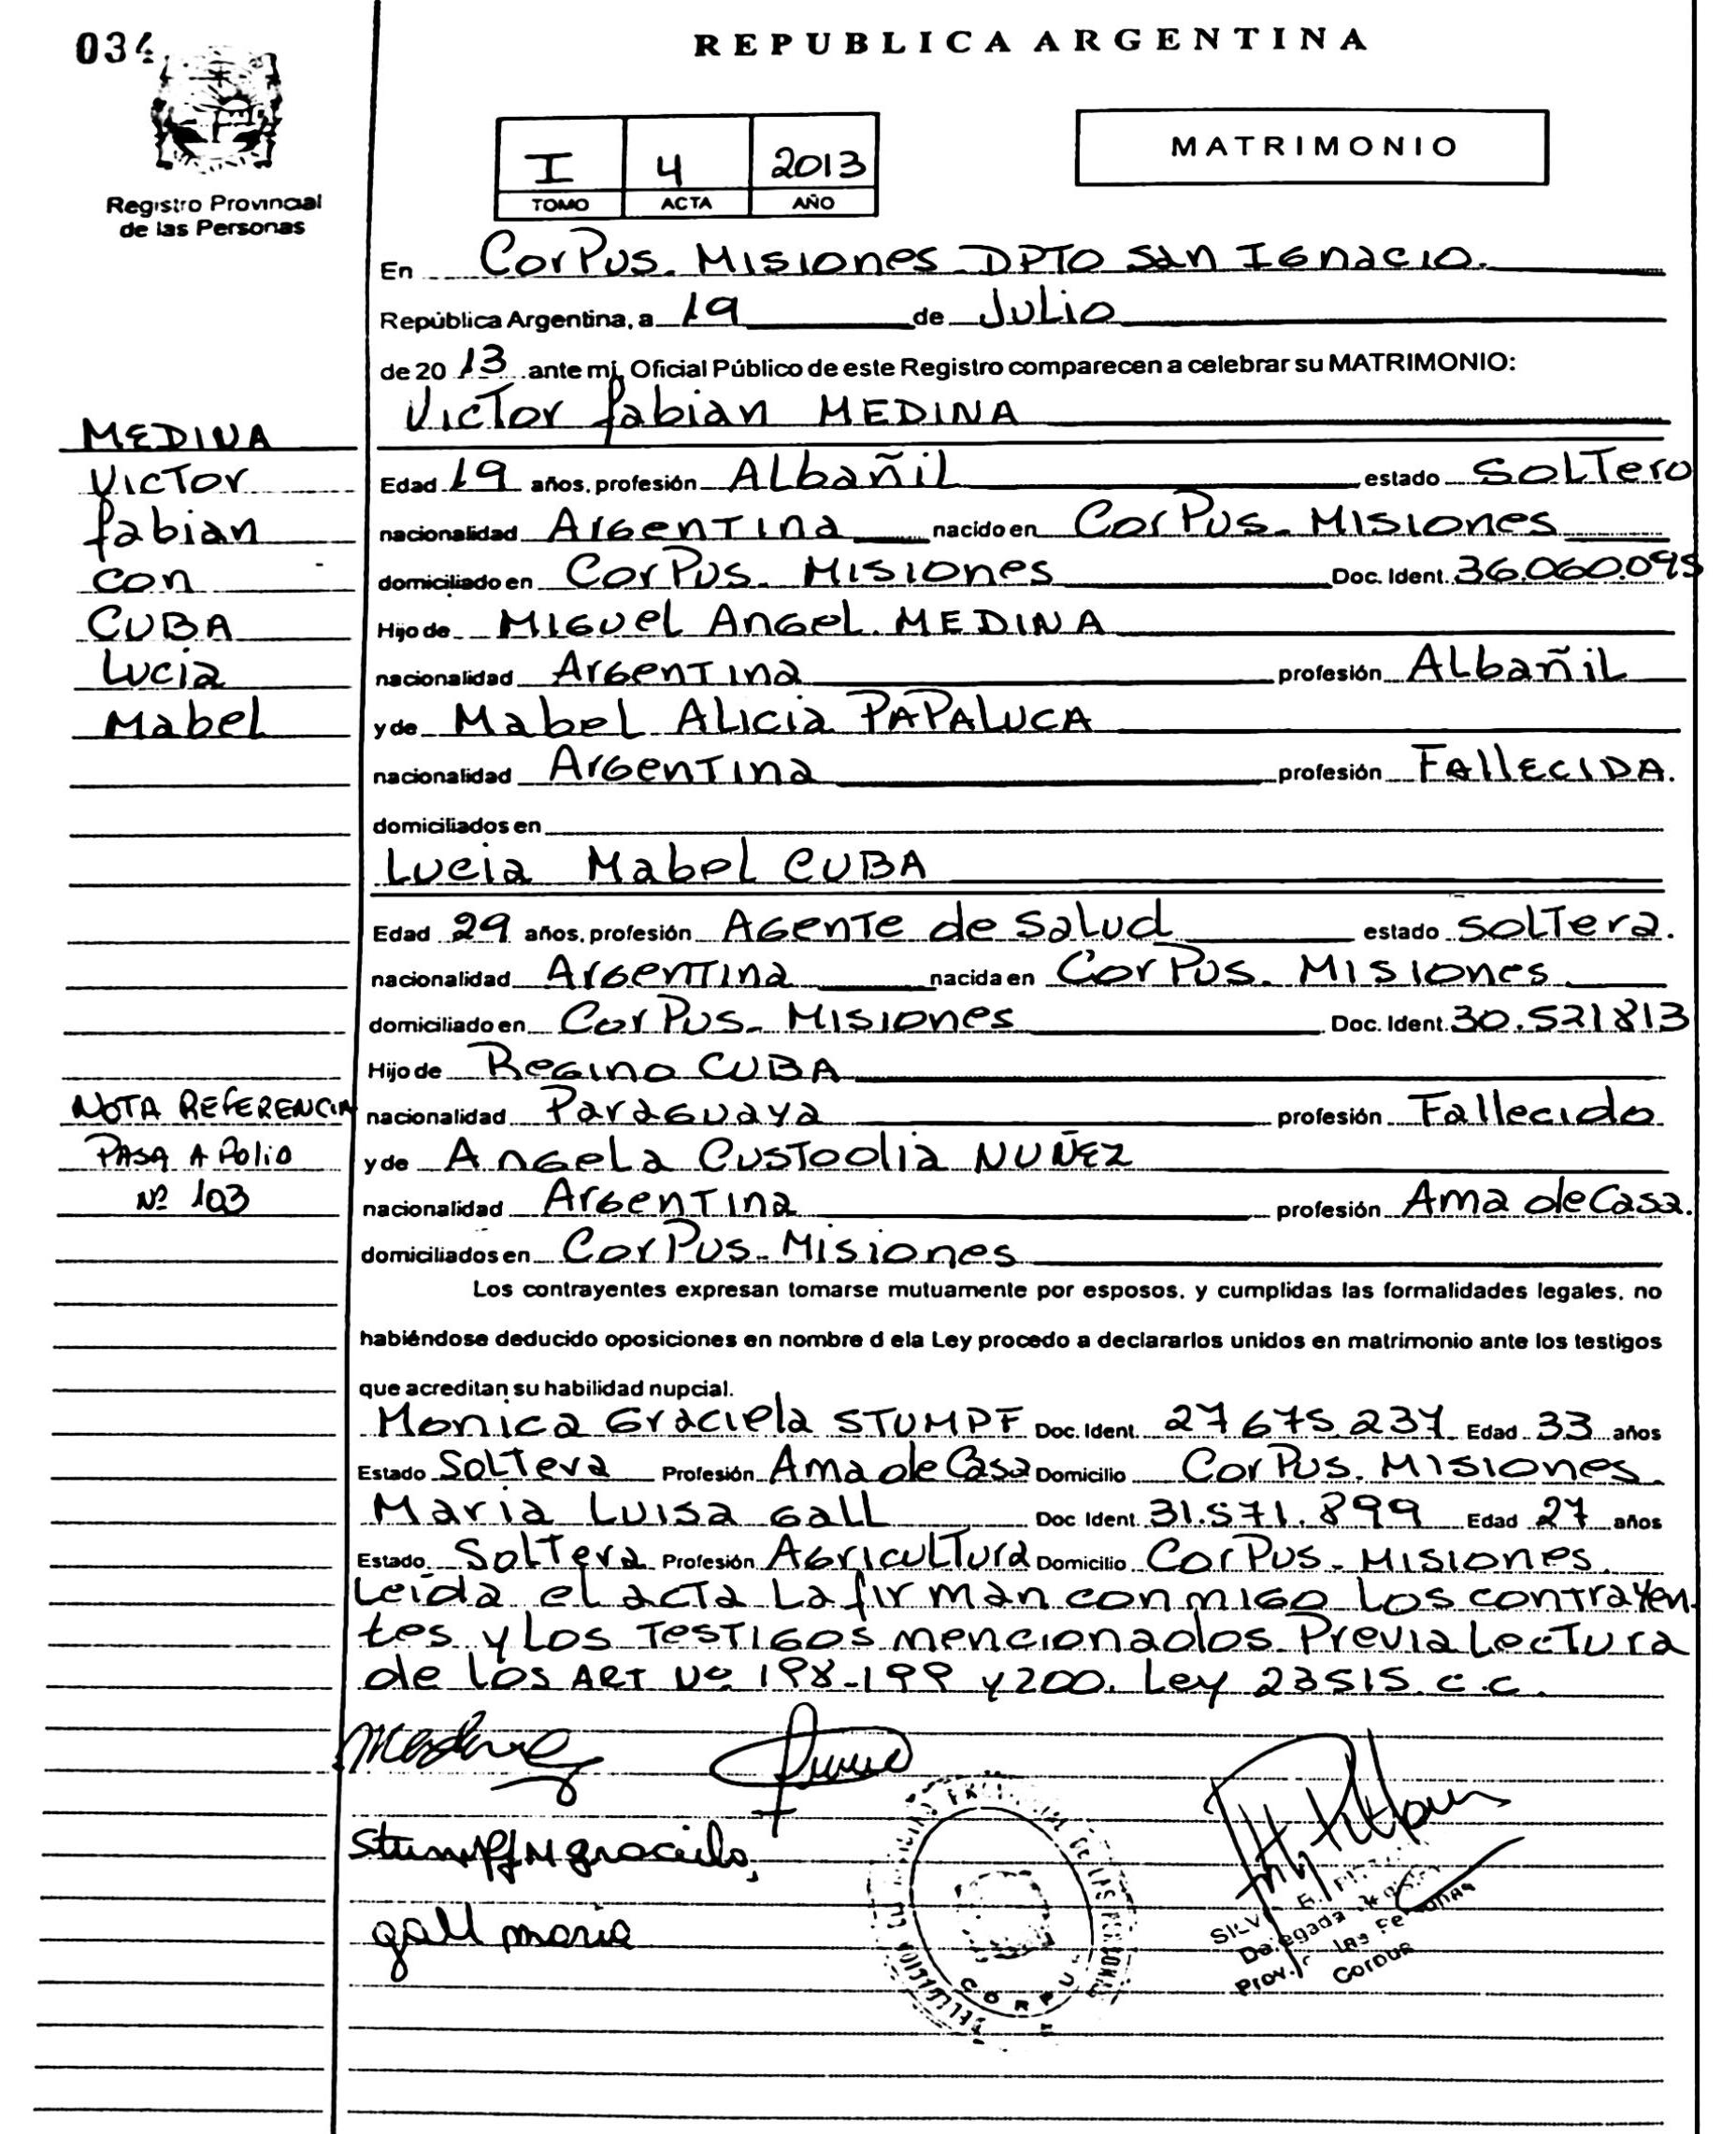 034
REPUBLICA ARGENTINA
MATRIMONIO
I 4 2013
TOMO ACTA AÑO
Registro Provincial
de las Personas
En CorPus. Misiones DPTO San Ignacio.
República Argentina, a 19 de Julio
de 20 13 ante mi, Oficial Público de este Registro comparecen a celebrar su MATRIMONIO:
Victor fabian MEDINA
MEDINA
Victor
fabian
con
CUBA
Lucia
Mabel
Edad 19 años, profesión Albañil estado Soltero
nacionalidad Argentina nacido en CorPus. Misiones
domiciliado en CorPus. Misiones Doc. Ident. 36.060.095
Hijo de Miguel Angel. MEDINA
nacionalidad Argentina profesión Albañil
y de Mabel Alicia PAPALUCA
nacionalidad Argentina profesión FALLECIDA.
domiciliados en
Lucia Mabel CUBA
Edad 29 años, profesión Agente de Salud estado Soltera.
nacionalidad Argentina nacida en CorPus. Misiones
domiciliado en CorPus. Misiones Doc. Ident. 30.521813
Hijo de Regino CUBA
nacionalidad Paraguaya profesión Fallecido
y de Angela Custodia NUÑEZ
nacionalidad Argentina profesión Ama de Casa.
domiciliados en CorPus. Misiones
NOTA REFERENCIA
PASA A Folio
Nº 103
Los contrayentes expresan tomarse mutuamente por esposos, y cumplidas las formalidades legales, no
habiéndose deducido oposiciones en nombre d ela Ley procedo a declararlos unidos en matrimonio ante los testigos
que acreditan su habilidad nupcial.
Monica Graciela STUMPF Doc. Ident. 27675.237 Edad 33 años
Estado Soltera Profesión Ama de Casa Domicilio CorPus. Misiones.
Maria Luisa Gall Doc Ident. 31.571.899 Edad 27 años
Estado. Soltera Profesión Agricultura Domicilio CorPus. Misiones.
Leida el acta La firman conmigo Los contrayen-
tes y Los Testigos mencionados Previa Lectura
de los ART Nº 198-199 y 200. Ley 23515. c.c.
Stumpf M graciela
gall maria
Delegada
Corpus
CORPUS